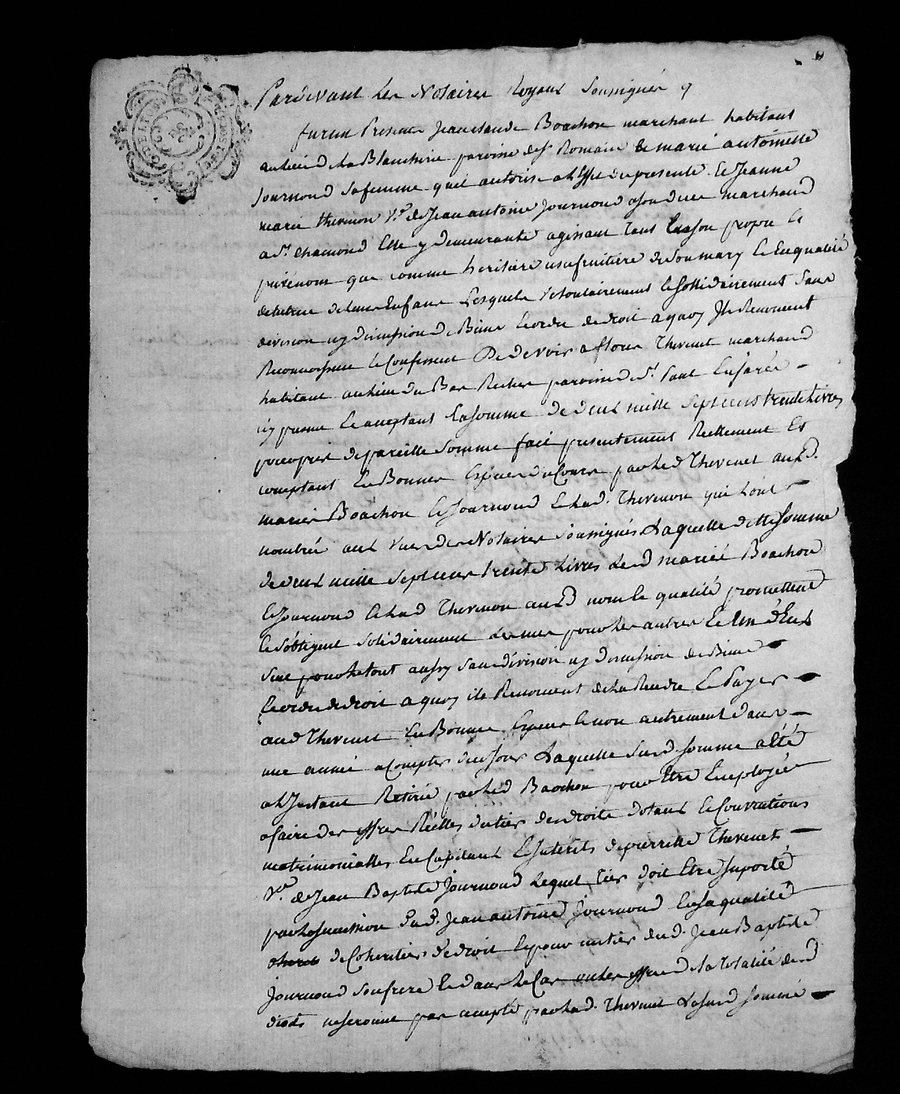 Pardevant Les Notaires Royaux Soussignés
furent Presents Jean claude Boachon marchand habitant
au lieu de La Blancherie paroisse de St Romain & marie antoinette
Journoud sa femme quil autorise a L'effet du presente Et Jeanne
marie thevenon Ve. de Jean antoine Journoud marchand
a St. chamond Elle y demeurante agissant tant En son propre Et
privé nom que comme heritiere usufruitiere de Son mary Et En qualité
de tutrice de leurs Enfans Lesquels Solidairement
division ny discussion de Biens Et ordre de droit a quoy Ils Renoncent
Reconnoissent Et Confessent De devoir a fleury Thevenet marchand
habitant au lieu du Bas Rocher paroisse de St. Paul En Jarés
icy present Et acceptant La somme de deux mille Sept cens trente Livres
de pareille Somme fait presentement Reellement Et
comptant En Bonnes Especes du Cours par Led Thevenet aux d.
mariés Boachon Et Journoud Et La d. Thevenon qui L'ont
nombrée aux vues des Notaires Soussignés Laquelle ditte Somme
de deux mille Sept cens trente Livres Les d mariés Boachon
Et Journoud Et La d Thevenon aux d nom Et qualité promettent
Et s'obligent solidairement Les uns pour Les autres Et L'un d'Eux
Seul pour Le tout aussy sans division ny discussion de Biens
Et ordre de droit a quoy ils Renoncent de La Rendre Et Payer
aud Thevenet En Bonnes Especes Et non autrement dans
une année a Compter de ce Jour Laquelle Susd. Somme a Eté
a L'Instant Retirée par Led Boachon pour Etre Employée
a faire des offres Réelles du tiers des droits dotaux Et Conventions
matrimonialles En Capitaux & Interets de pierrette Thevenet
Ve. de Jean Baptiste Journoud Lequel tiers doit Etre Suporté
par La Succession du d. Jean antoine Journoud En sa qualité
de Coheritier de droit Et pour un tiers du d. Jean Baptiste
Journoud Son frere Et dans Le Cas ou Les offres de La totalité desd
droits ne seroient pas acceptés par La d. Thevenet La susd Somme